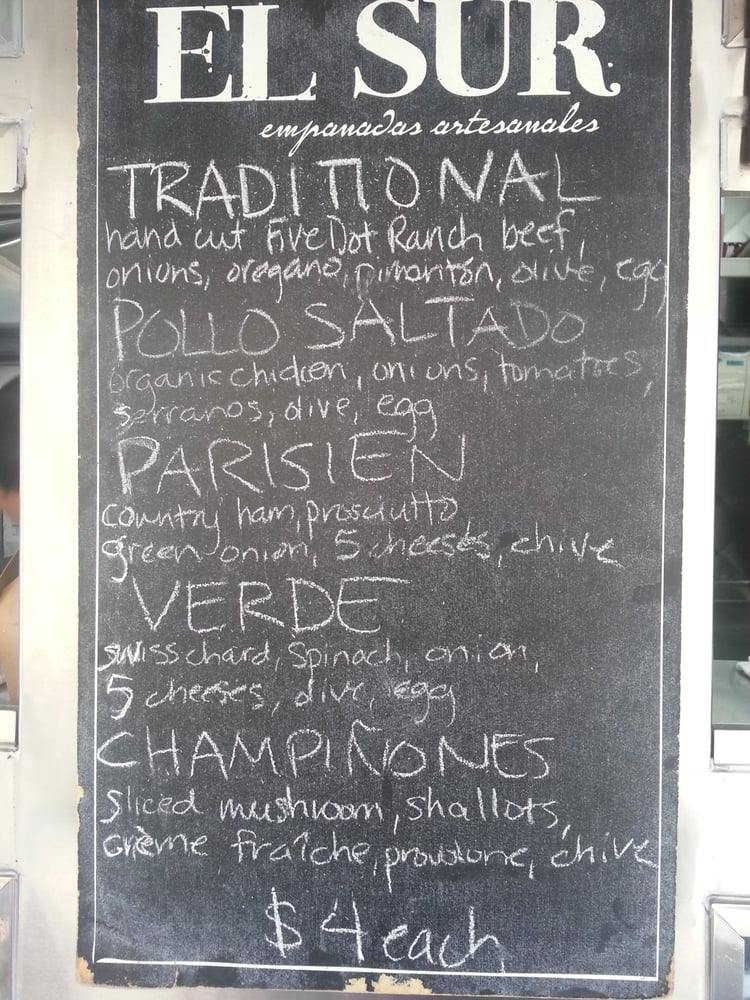 EL SUR
empanadas artesanales
TRADITIONAL
hand cut Five Dot Ranch beef,
onions, oregano, pimenton, olive, egg
POLLO SALTADO
organic chicken, onions, tomatoes,
serranos, olive, egg
PARISIEN
country ham, prosciutto
green onion, 5 cheeses, chive
VERDE
swiss chard, spinach, onion,
5 cheeses, olive, egg
CHAMPIÑONES
sliced mushroom, shallots,
crème fraîche, provolone, chive
$4 each